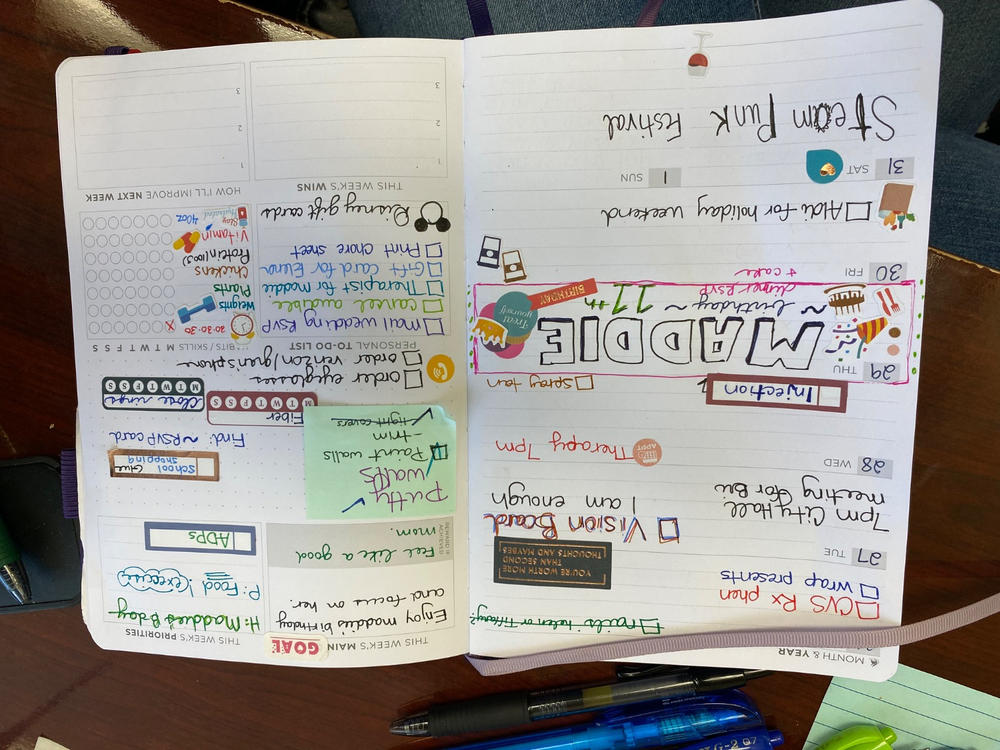 THIS WEEK'S MAIN GOAL
Enjoy maddie's birthday
and focus on her.
REWARD IF
ACHIEVED
Feel like a good
mom.
THIS WEEK'S PRIORITIES
H: Maddie's Bday
P: Food / exercise
ADPs
Putty
walls
Paint walls
-trim
light covers
School
shopping
Glue
Find: ~RSVP card
Fiber
M T W T F S S
Close rings
M T W T F S S
order eyeglasses
order verizon/gen's phone
PERSONAL TO-DO LIST
mail wedding RSVP
cancel audible
Therapist for maddie
Gift card for Elena
Print chore sheet
Disney gift cards
BITS / SKILLS
M T W T F S S
20:30:30 X
weights
Plants
Chickens
Protein (100g)
Vitamin
Stay
Hydrated
40oz
THIS WEEK'S WINS
1
2
3
HOW I'LL IMPROVE NEXT WEEK
1
2
3
MONTH & YEAR
CVS Rx phen
Wrap presents
27
TUE
YOU'RE WORTH MORE
THAN SECOND
THOUGHTS AND MAYBES
7pm City Hall
meeting for Bu
Vision Board
I am enough
28
WED
Therapy 7pm
Injection
Spray tan
29
THU
MADDIE
~ birthday ~ 11th
dinner RSVP
+ cake
Treat
yourself
BIRTHDAY
30
FRI
Aldi for holiday weekend
31
SAT
1
SUN
Steam Punk Festival
G-2 07